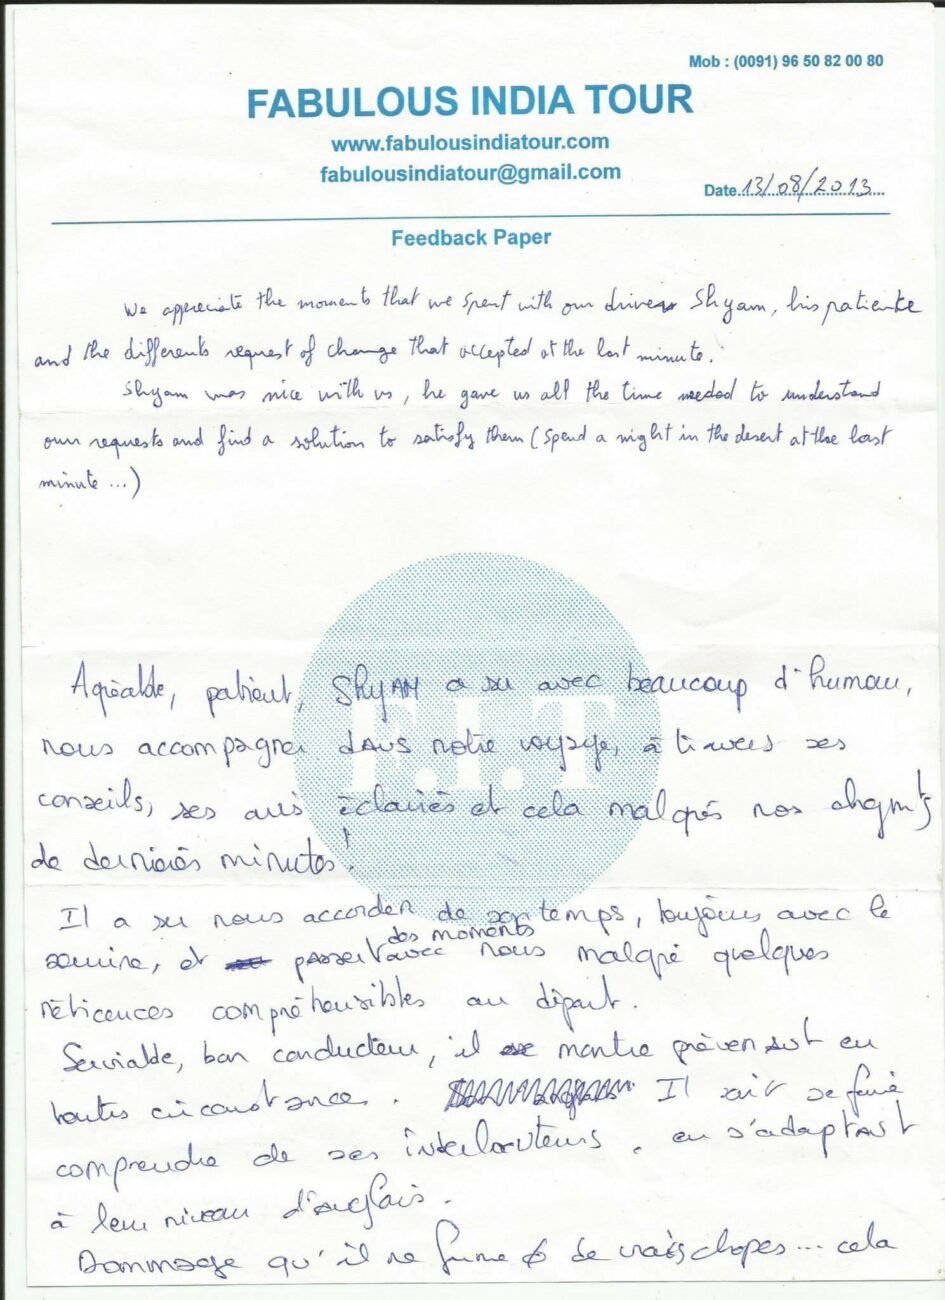 Mob : (0091) 96 50 82 00 80
FABULOUS INDIA TOUR
www.fabulousindiatour.com
fabulousindiatour@gmail.com
Date 13/08/2013
Feedback Paper
We appreciate the moments that we spent with our driver Shyam, his patience
and the differents request of change that accepted at the last minute.
Shyam was nice with us, he gave us all the time needed to understand
our requests and find a solution to satisfy them (Spend a night in the desert at the last
minute ...)
Agréable, patient, SHYAM a su avec beaucoup d'humour,
nous accompagner dans notre voyage, à travers ses
conseils, ses avis éclairés et cela malgrés nos chgmts
de dernières minutes!
F.I.T
Il a su nous accorder de son temps, toujours avec le
des moments
sourire, et passer avec nous malgré quelques
réticences compréhensibles au départ.
Serviable, bon conducteur, il se montre prévenant en
toutes circonstances. Il sait se faire
comprendre de ses interlocuteurs, en s'adaptant
à leur niveau d'anglais.
Dommage qu'il ne fume de vrais clopes... cela